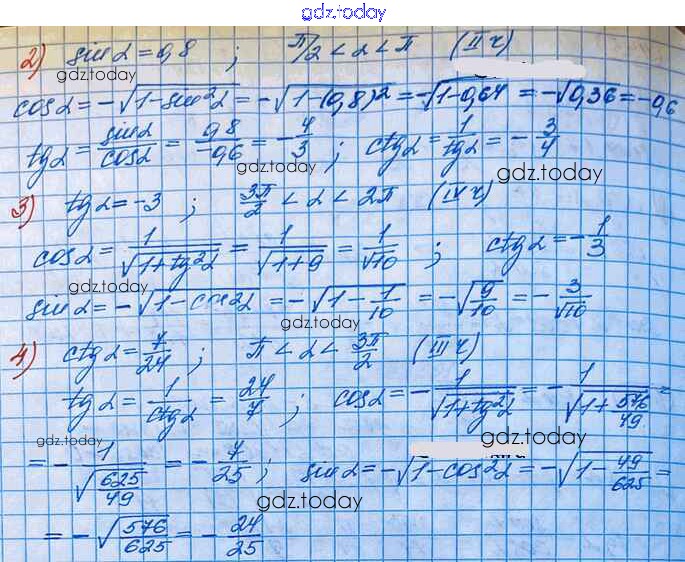 gdz.today
2) sin α = 0,8 ; π/2 < α < π (II ч)
gdz.today
cos α = -√(1-sin²α) = -√(1-(0,8)²) = -√(1-0,64) = -√0,36 = -0,6
tg α = sin α/cos α = 0,8/-0,6 = -4/3 ; ctg α = 1/tg α = -3/4
gdz.today
gdz.today
3) tg α = -3 ; 3π/2 < α < 2π (IV ч)
cos α = 1/√(1+tg²α) = 1/√(1+9) = 1/√10 ; ctg α = -1/3
gdz.today
sin α = -√(1-cos²α) = -√(1-1/10) = -√(9/10) = -3/√10
gdz.today
4) ctg α = 7/24 ; π < α < 3π/2 (III ч)
tg α = 1/ctg α = 24/7 ; cos α = -1/√(1+tg²α) = -1/√(1+576/49) =
gdz.today
gdz.today
= -1/√(625/49) = -7/25 ; sin α = -√(1-cos²α) = -√(1-49/625) =
gdz.today
= -√(576/625) = -24/25